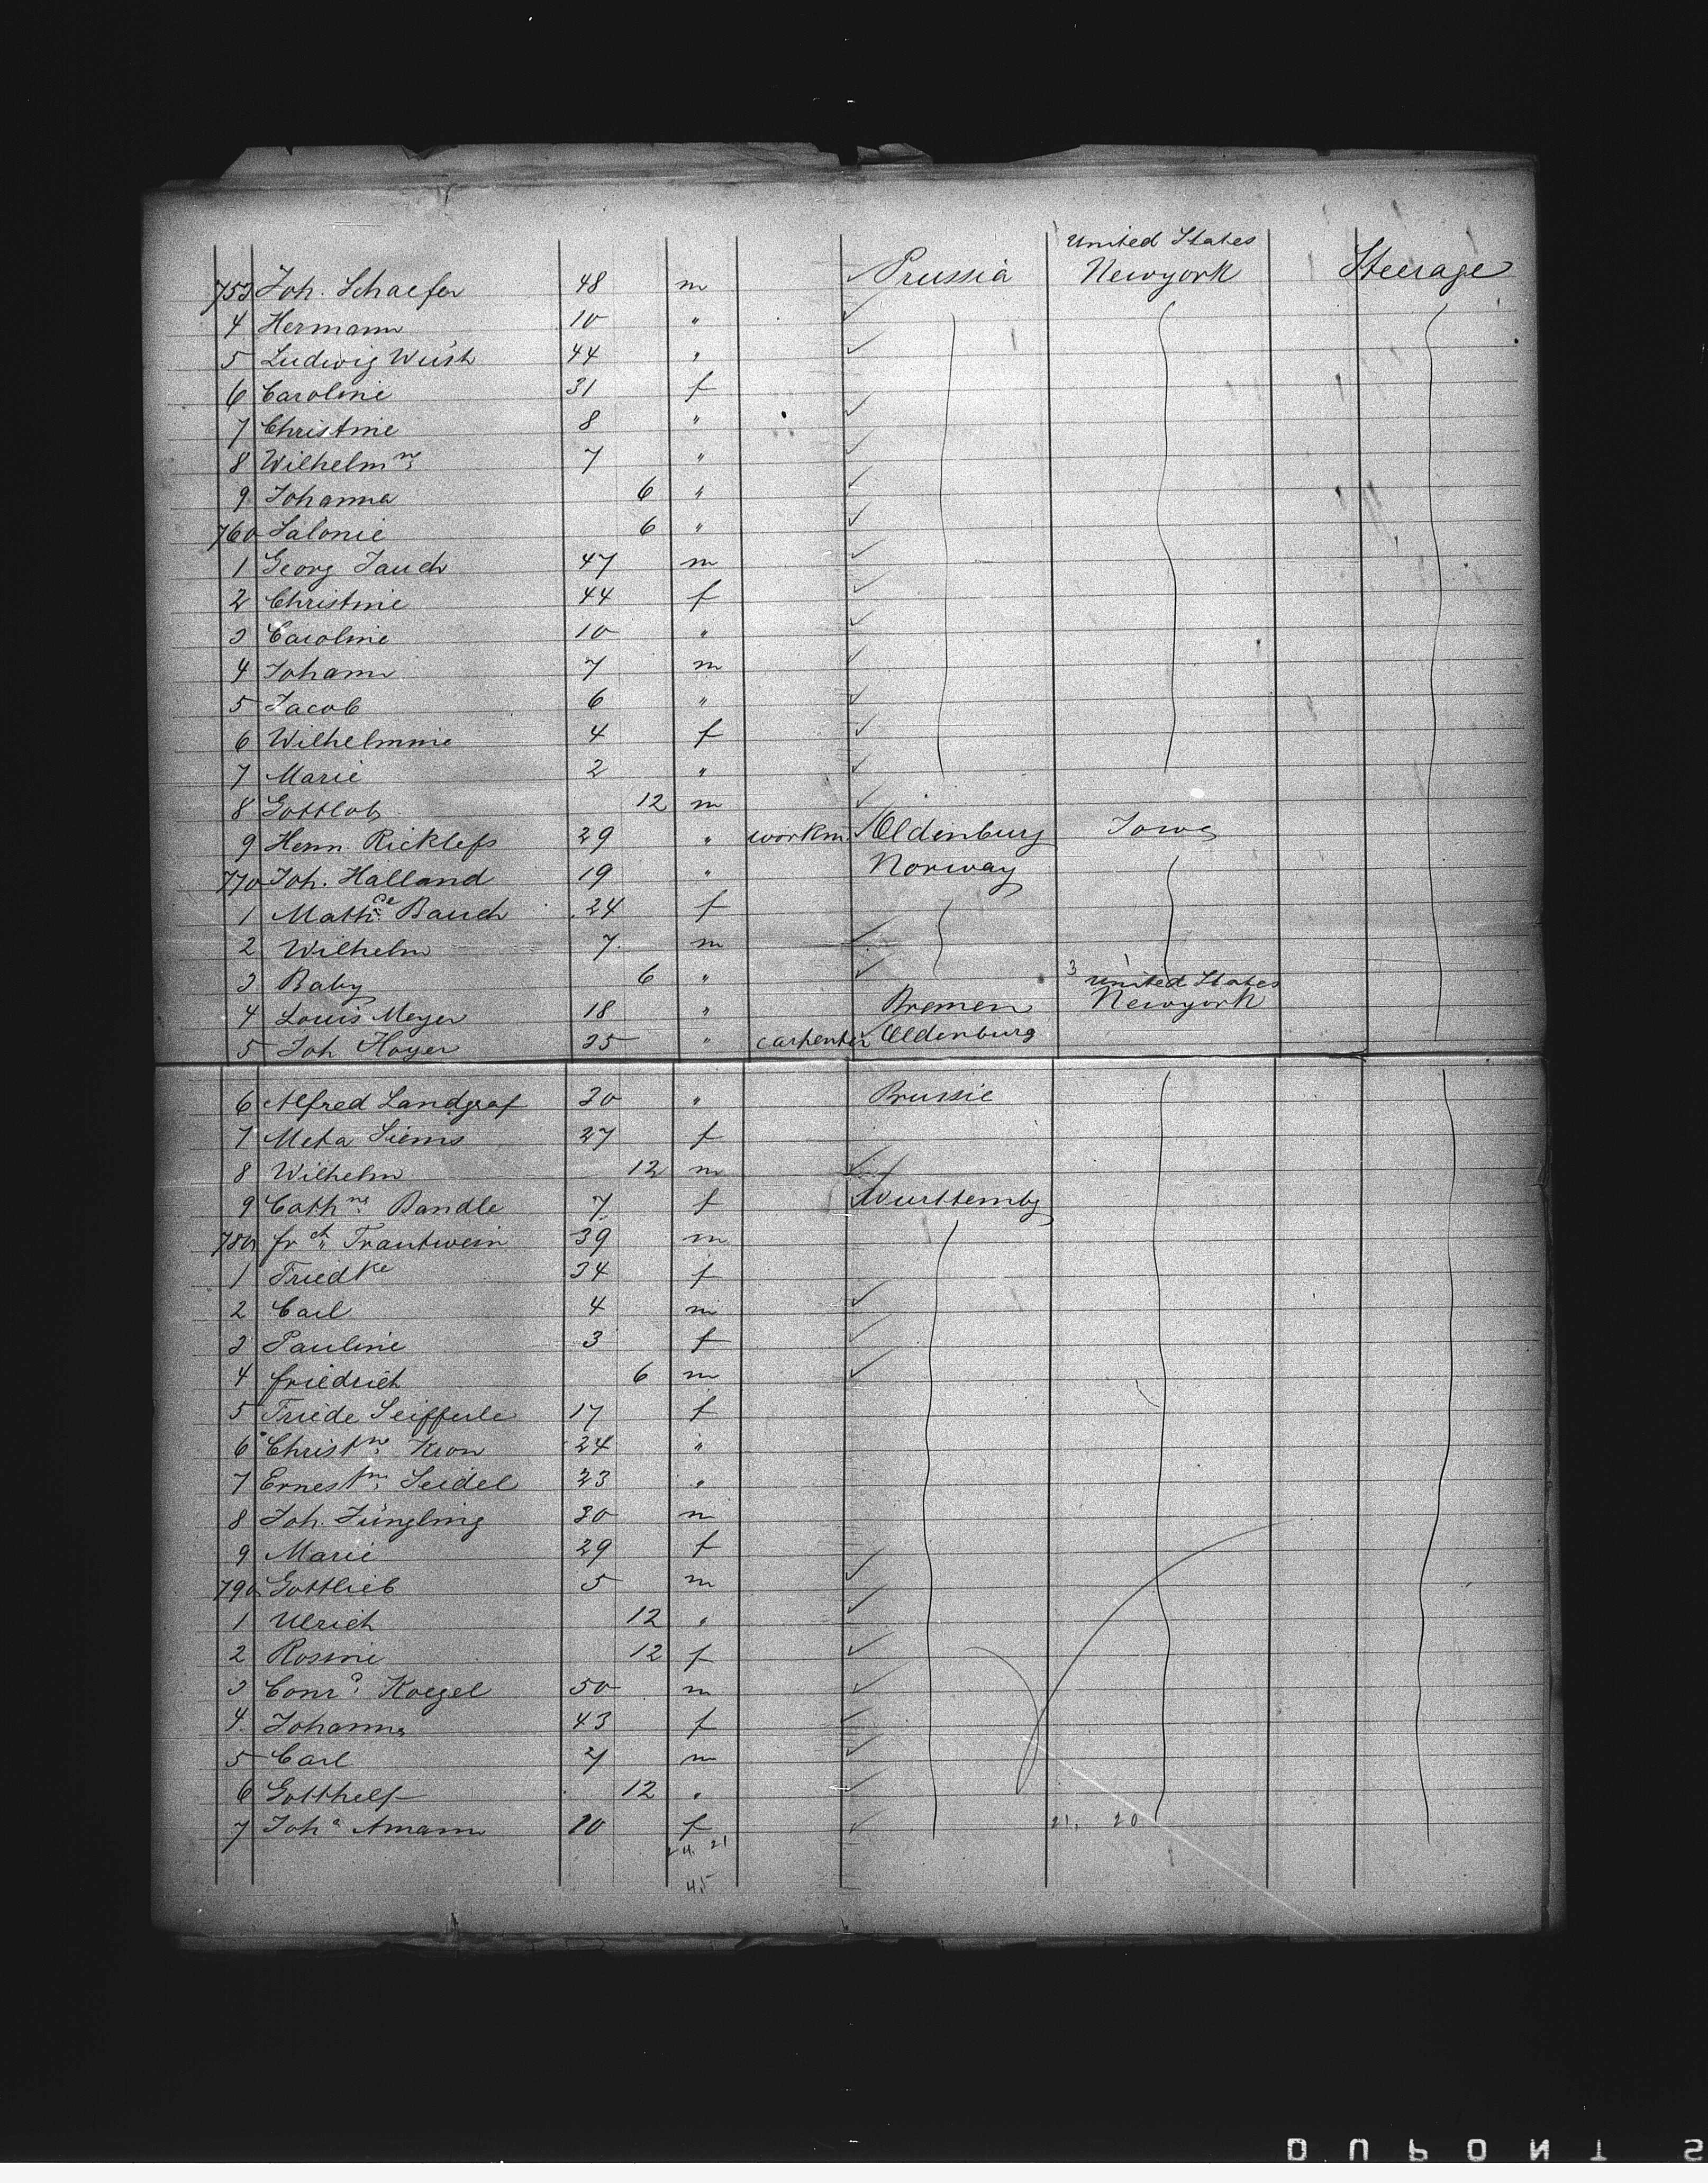 United States
753 Joh. Schaefer 48 m Prussia Newyork Steerage
4 Hermann 10 "
5 Ludwig Wüsth 44 "
6 Caroline 31 f
7 Christine 8 "
8 Wilhelmne 7 "
9 Johanna 6 "
760 Salonie 6 "
1 Georg Jauch 47 m
2 Christine 44 f
3 Caroline 10 "
4 Johann 7 m
5 Jacob 6 "
6 Wilhelmine 4 f
7 Marie 2 "
8 Gottlob 12 m
9 Herm. Ricklefs 29 " workm. Oldenburg Iowa
770 Joh. Halland 19 " Norway
1 Mathde Bauch 24 f
2 Wilhelm 7 m
3 Baby 6 " 3 United States
4 Louis Meyer 18 " Bremen Newyork
5 Joh Hoyer 25 " carpenter Oldenburg
6 Alfred Landgraf 30 " Prussie
7 Meta Siems 27 f
8 Wilhelm 12 m
9 Cathne Bandle 7 f Wurttembg
780 frch Trautwein 39 m
1 Friedke 34 f
2 Carl 4 m
3 Pauline 3 f
4 friedrich 6 m
5 Friede Seifferle 17 f
6 Christne Kron 24 "
7 Ernestne Seidel 23 "
8 Joh. Jüngling 30 m
9 Marie 29 f
790 Gottlieb 5 m
1 Ulrich 12 "
2 Rosine 12 f
3 Conrd Koegel 50 m
4 Johanna 43 f
5 Carl 7 m
6 Gotthelf 12 "
7 Joha Amann 10 f 21. 20
24. 21
45
DUPONT S